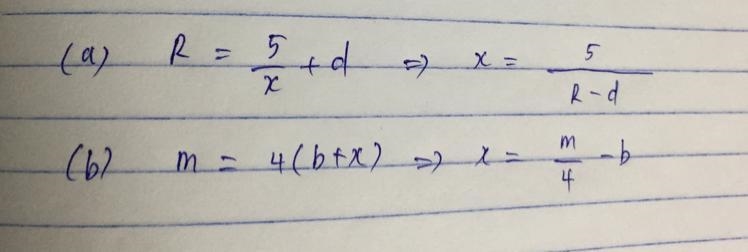 (a) R = 5/x + d ⇒ x = 5/(R-d)
(b) m = 4(b+x) ⇒ x = m/4 - b